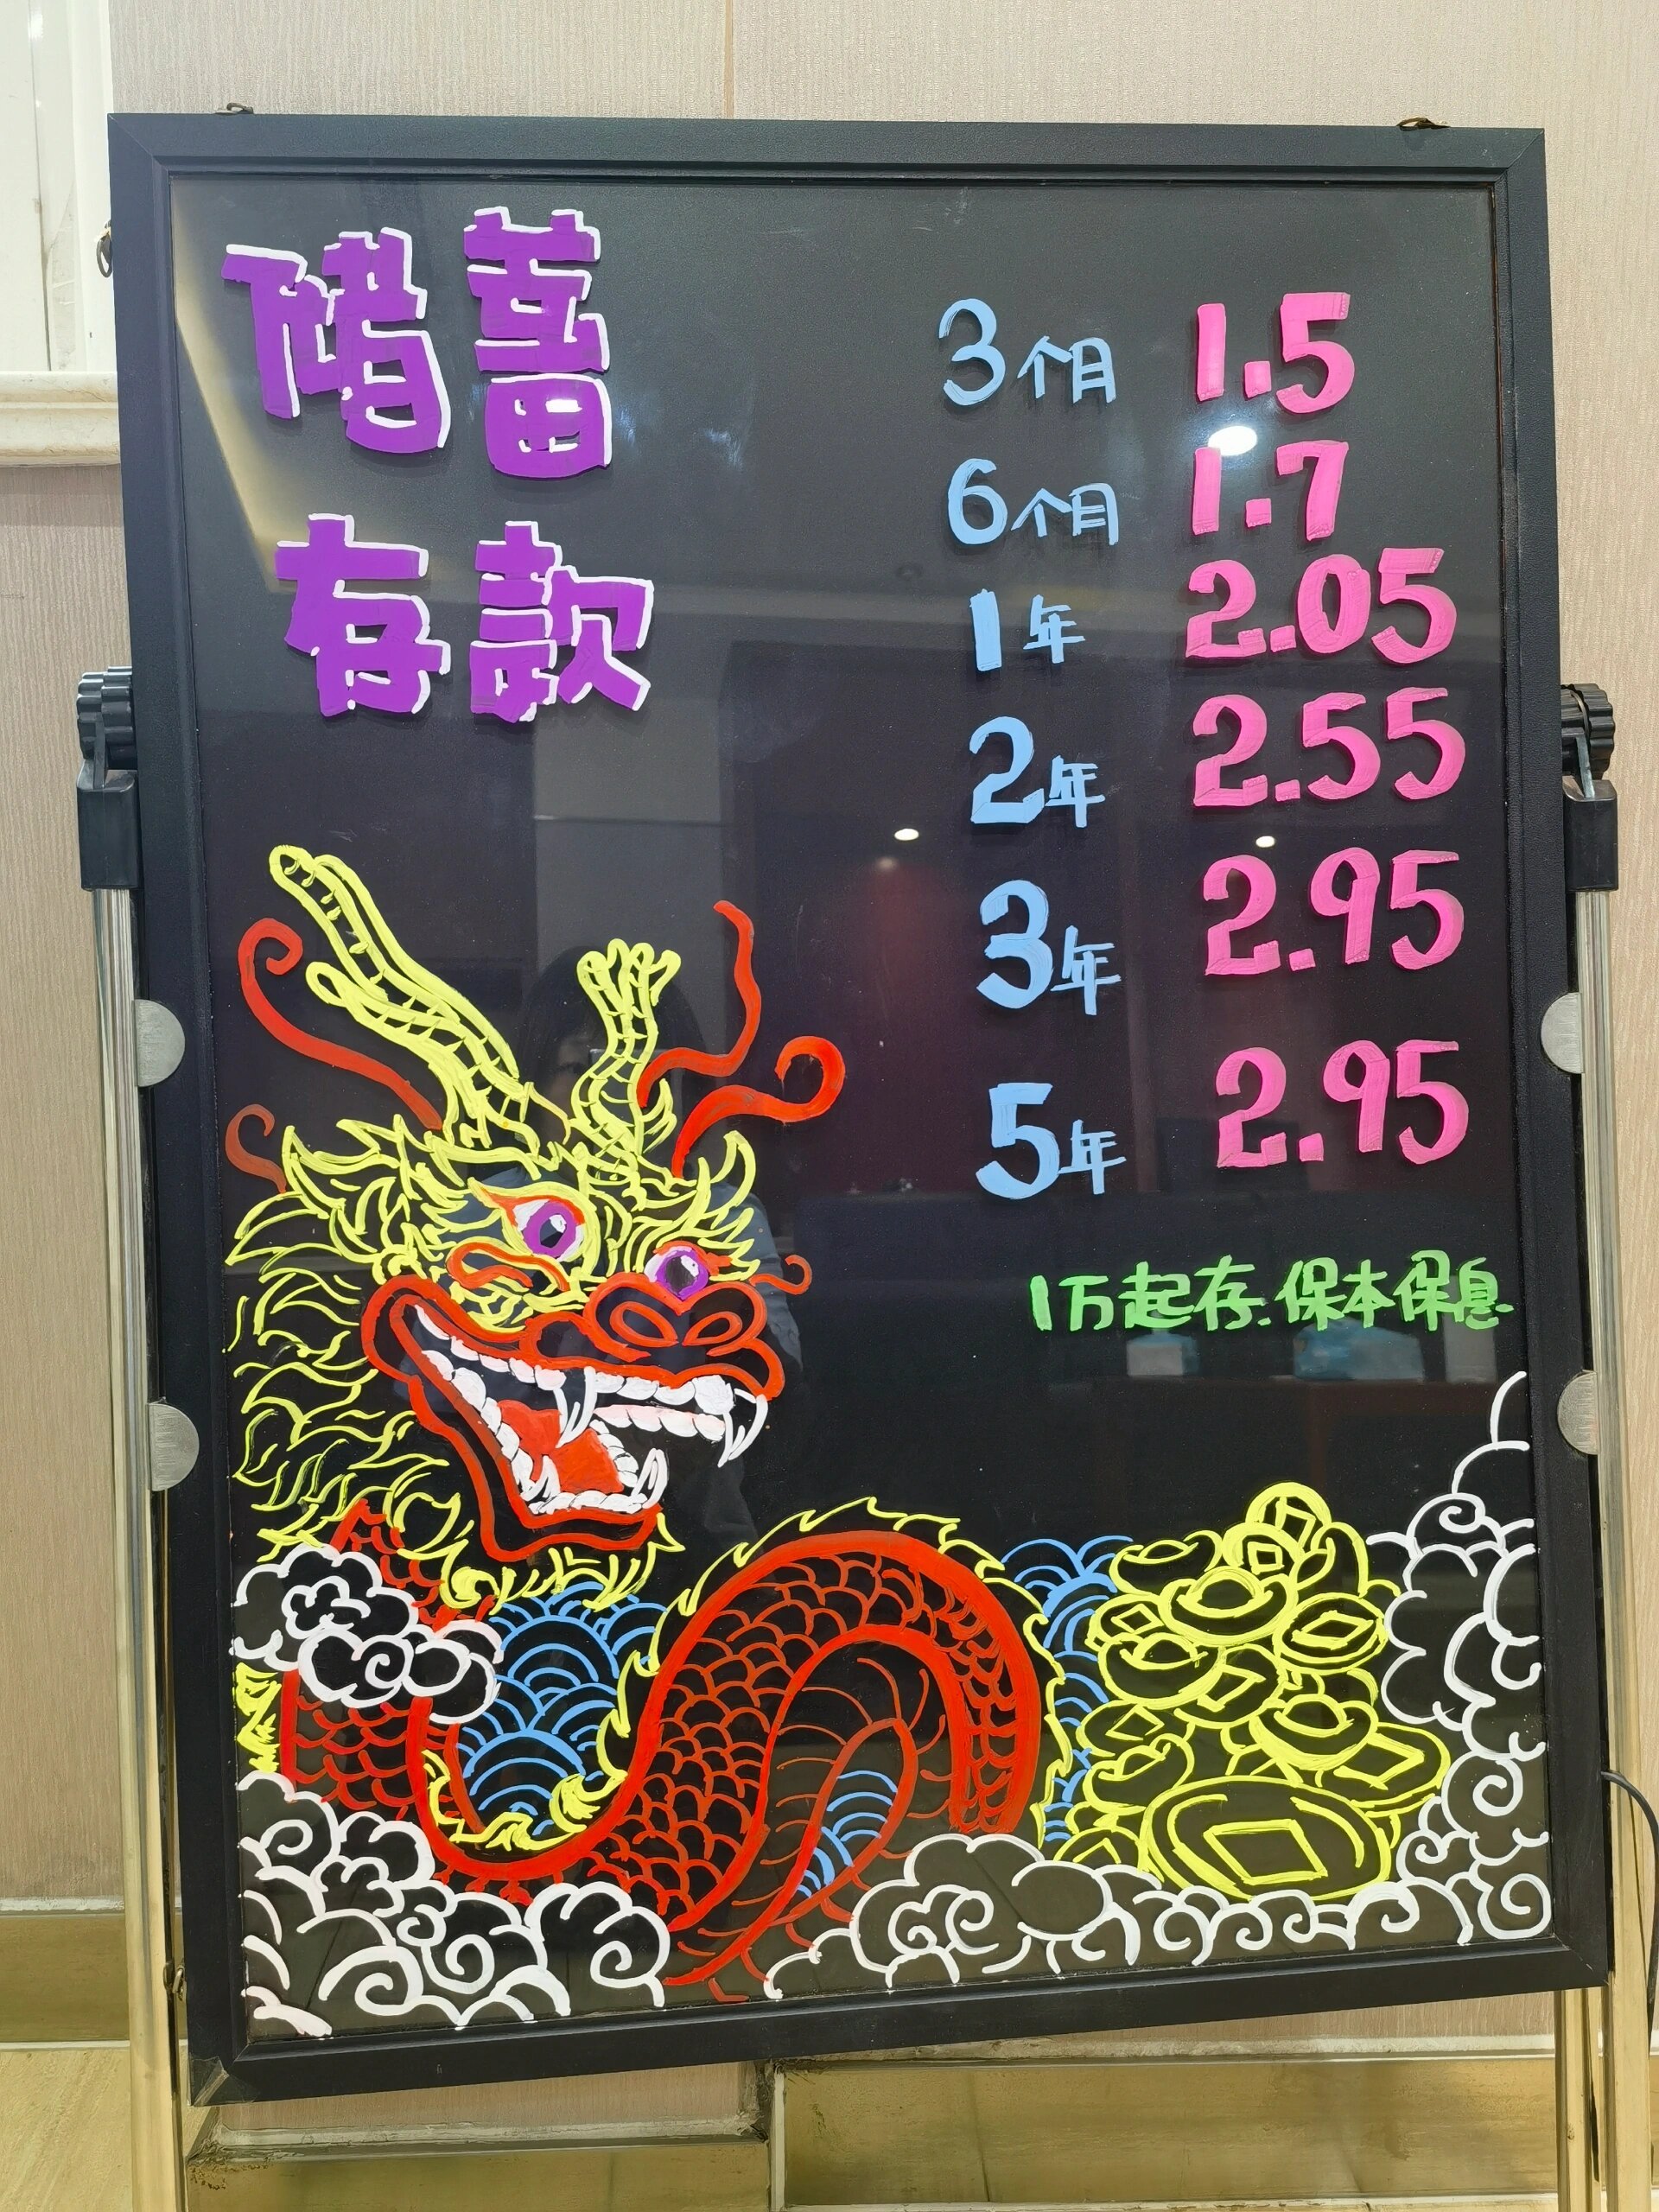 储蓄
存款
3个月 1.5
6个月 1.7
1年 2.05
2年 2.55
3年 2.95
5年 2.95
1万起存.保本保息